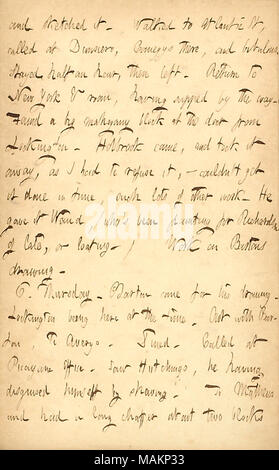 and sketched it. Walked to Atlantic St,
called at Dunsiers, Cozzens there, and bibulous.
Stayed half an hour, then left. Return to
New York & room, having supped by the way.
Found a big mahogany block at the door from
Lockington. Holbrook came, and took it
away, as I had to refuse it, couldn't get
it done in time, with lots of other work. He
gave it Waud (who's been drawing for Richardson
of late, or loafing.) Work on Barton
drawing.
6. Thursday. Barton came for his drawing.
Lockington being here at the time. Out with Bar-
ton, to Avery's. Dined. Called at
Picayune Office. Saw Hutchings, he having
disguised himself by shaving. To Mathews
and had a long chaffer about two blocks
alamy
Image ID: MAKP33
www.alamy.com